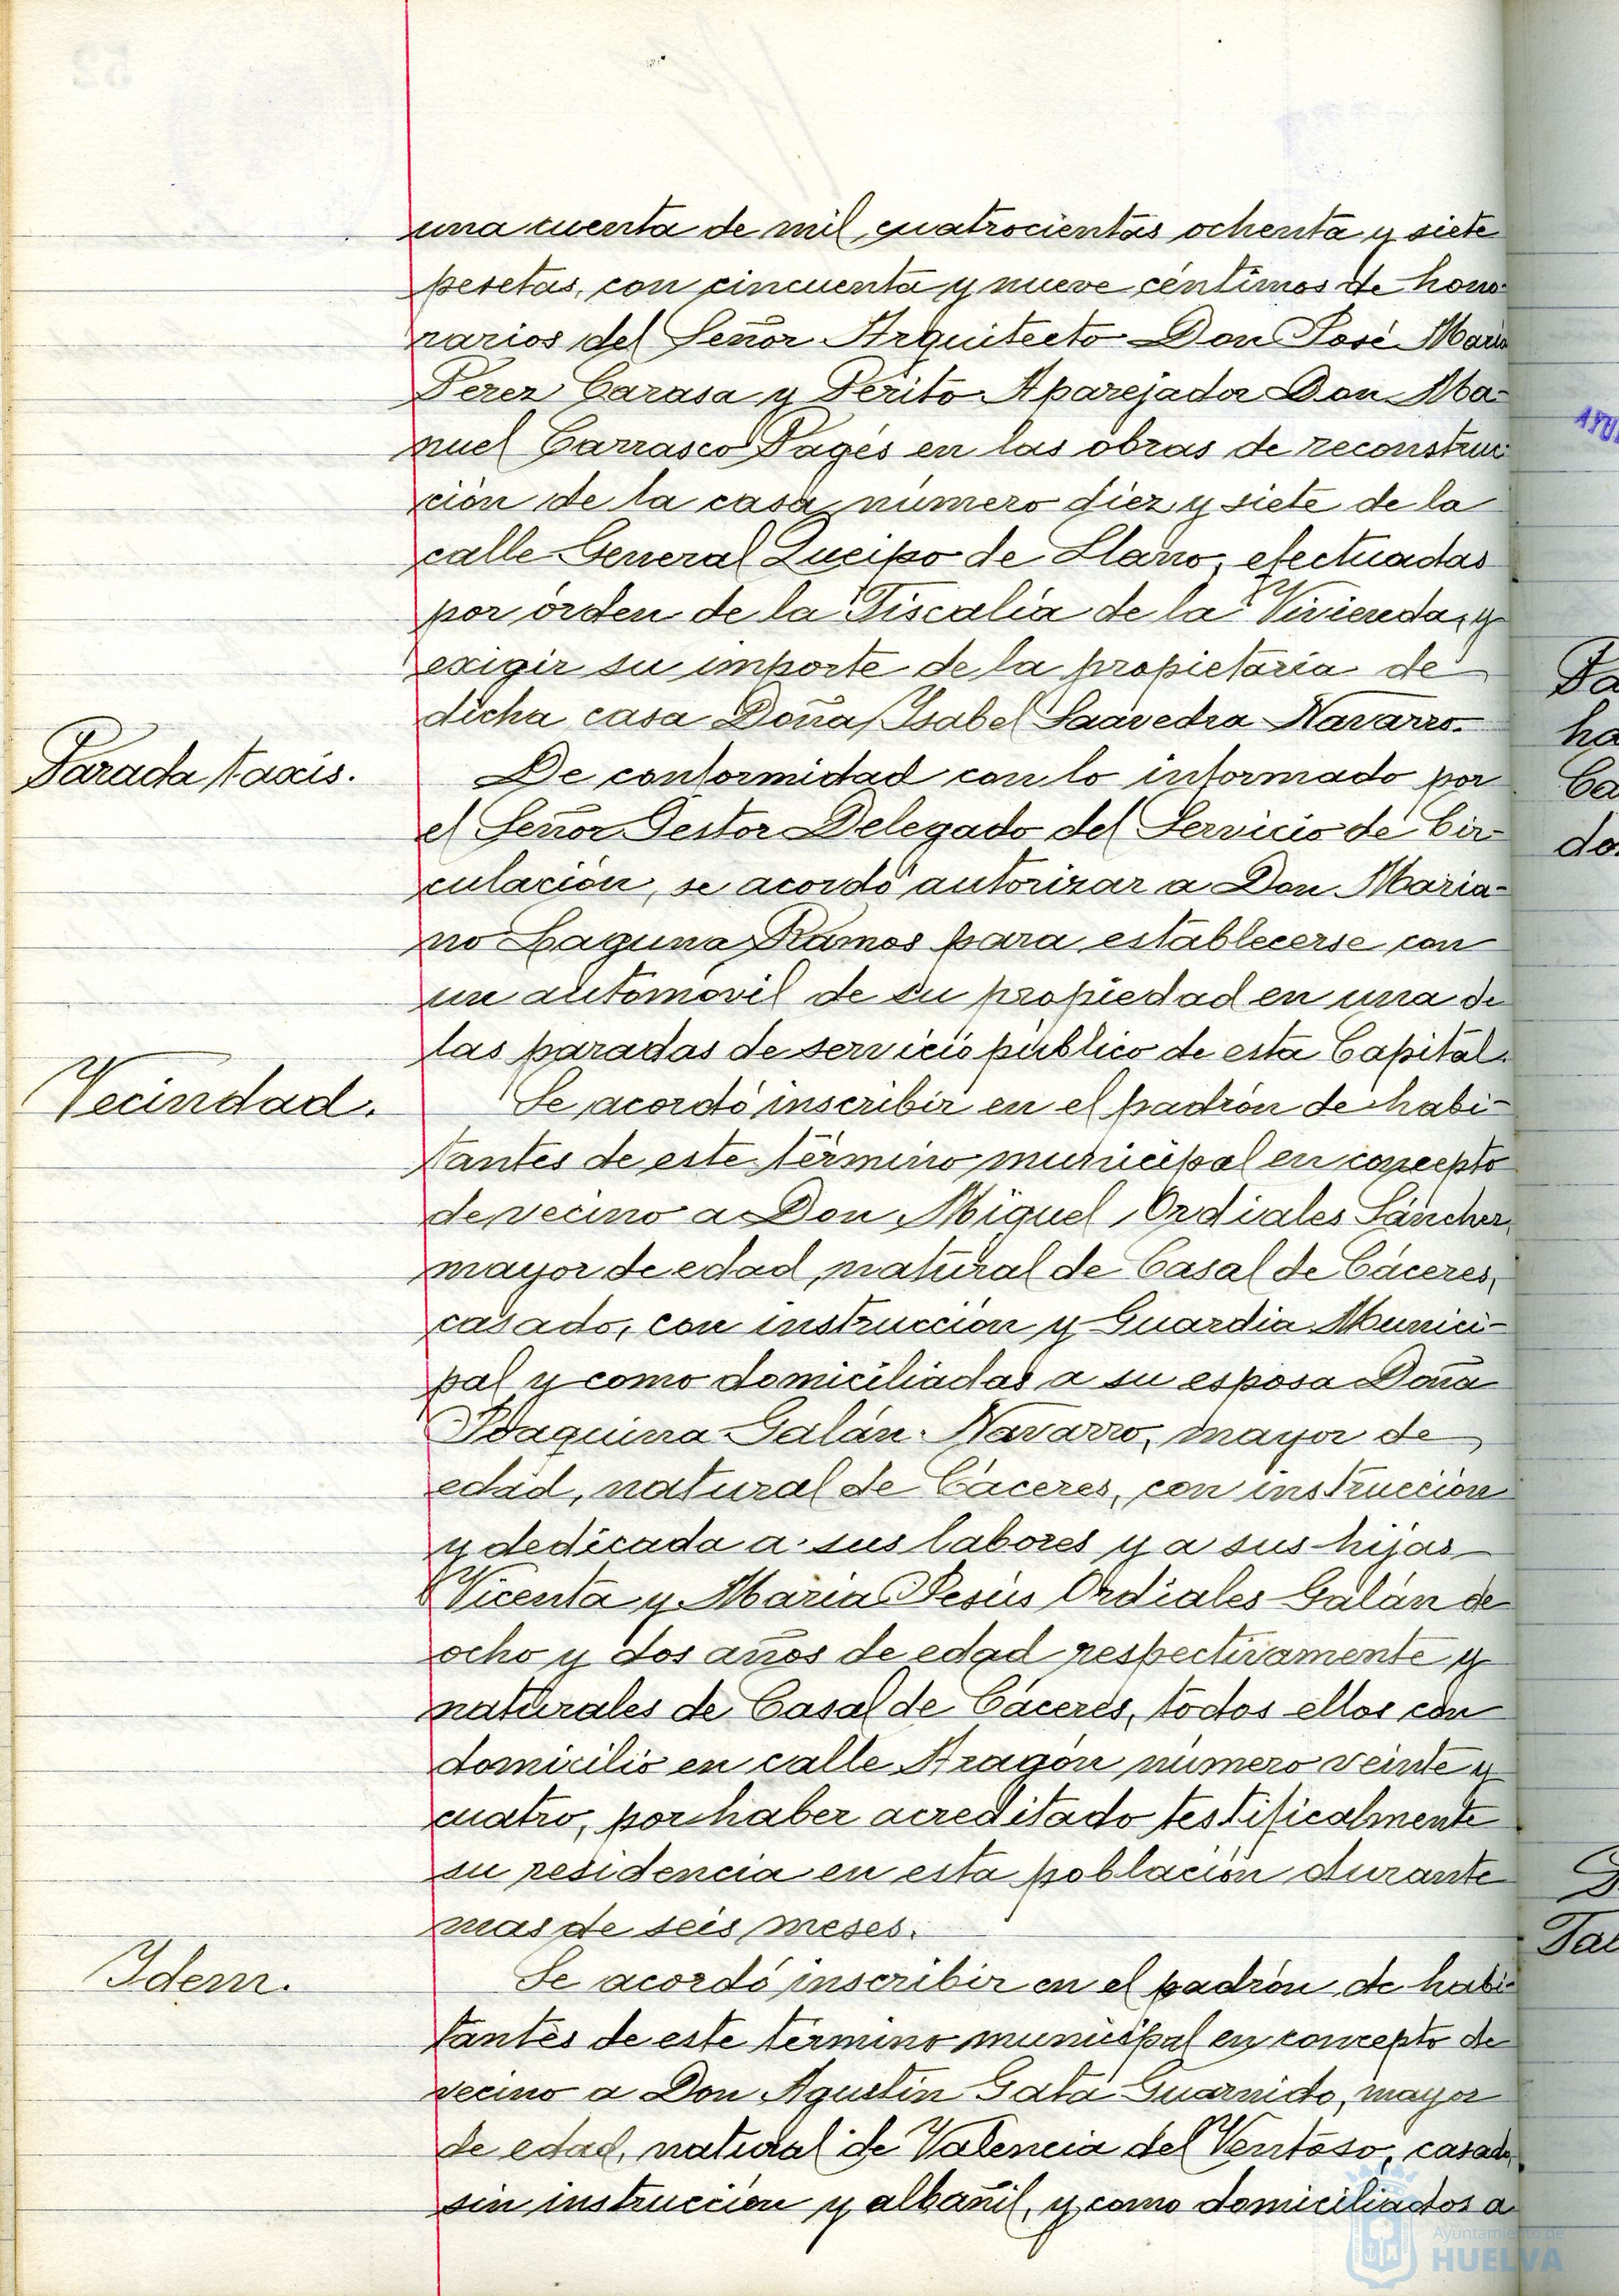 una cuenta de mil cuatrocientas ochenta y siete
pesetas, con cincuenta y nueve céntimos de hono-
rarios del Señor Arquitecto Don José Maria
Perez Carasa y Perito Aparejador Don Ma-
nuel Carrasco Pagés en las obras de reconstruc-
ción de la casa número diez y siete de la
calle General Queipo de Llano, efectuadas
por órden de la Fiscalía de la Vivienda, y
exigir su importe de la propietaria de
dicha casa Doña Isabel Saavedra Navarro.
Parada taxis.
De conformidad con lo informado por
el Señor Gestor Delegado del Servicio de Cir-
culación, se acordó autorizar a Don Maria-
no Laguna Ramos para establecerse con
un automóvil de su propiedad en una de
las paradas de servicio público de esta Capital.
Vecindad.
Se acordó inscribir en el padrón de habi-
tantes de este término municipal en concepto
de vecino a Don Miguel Ordiales Sánchez,
mayor de edad, natural de Casal de Cáceres,
casado, con instrucción y Guardia Munici-
pal y como domiciliadas a su esposa Doña
Joaquina Galán Navarro, mayor de
edad, natural de Cáceres, con instrucción
y dedicada a sus labores y a sus hijas
Vicenta y María Jesús Ordiales Galán de
ocho y dos años de edad respectivamente y
naturales de Casal de Cáceres, todos ellos con
domicilio en calle Aragón número veinte y
cuatro, por haber acreditado testificalmente
su residencia en esta población durante
mas de seis meses.
Idem.
Se acordó inscribir en el padrón de habi-
tantes de este término municipal en concepto de
vecino a Don Agustín Gata Guarnido, mayor
de edad, natural de Valencia del Ventoso, casado,
sin instrucción y albañil, y como domiciliados a
Ayuntamiento de
HUELVA